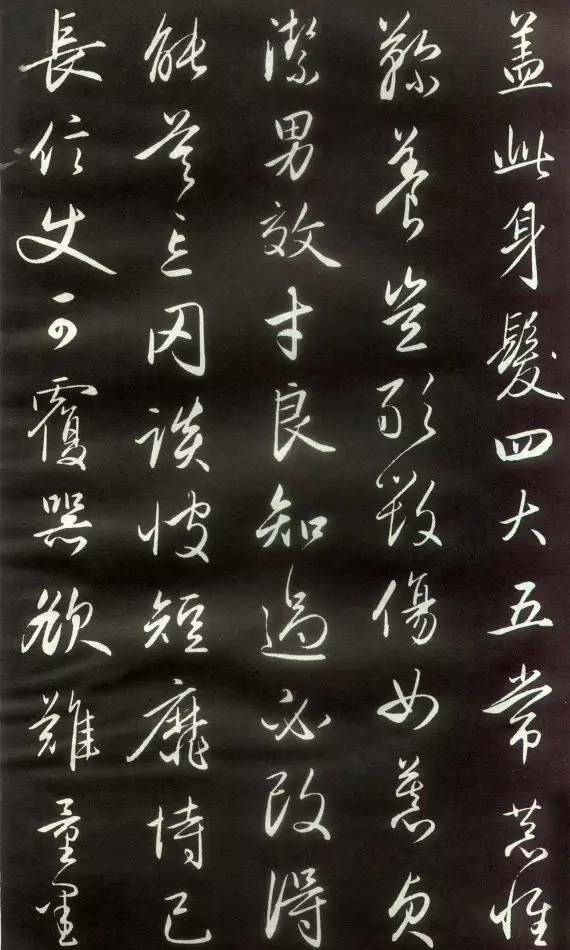 盖此身髮四大五常恭惟
鞠養豈敢毀傷女慕貞
潔男效才良知過必改得
能莫忘罔談彼短靡恃己
長信使可覆器欲難量墨